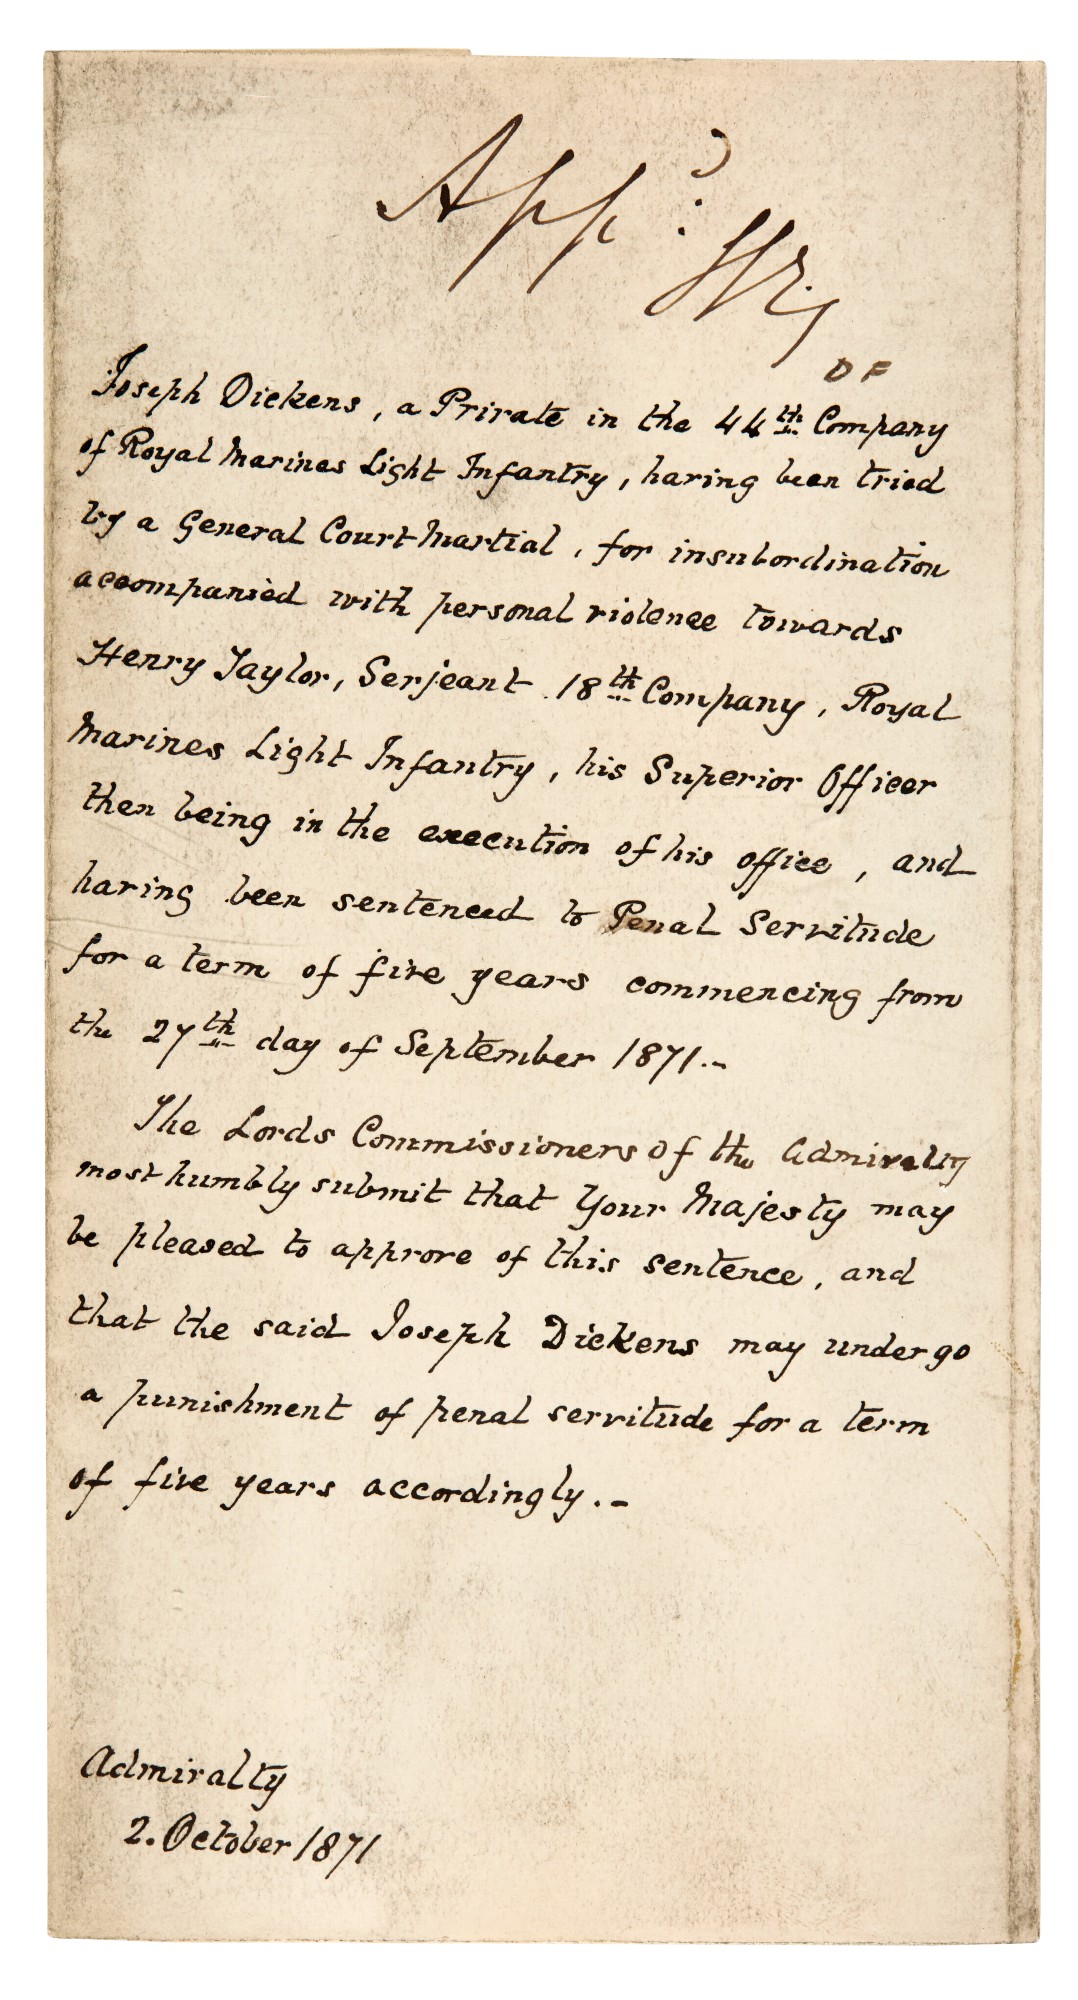 Appd:
VR,
DF
Joseph Dickens, a Private in the 44th Company
of Royal Marines Light Infantry, having been tried
by a General Court Martial, for insubordination
accompanied with personal violence towards
Henry Taylor, Serjeant 18th Company, Royal
Marines Light Infantry, his Superior Officer
then being in the execution of his office, and
having been sentenced to Penal Servitude
for a term of five years commencing from
the 27th day of September 1871.-
The Lords Commissioners of the Admiralty
most humbly submit that Your Majesty may
be pleased to approve of this sentence, and
that the said Joseph Dickens may undergo
a punishment of penal servitude for a term
of five years accordingly.-
Admiralty
2. October 1871